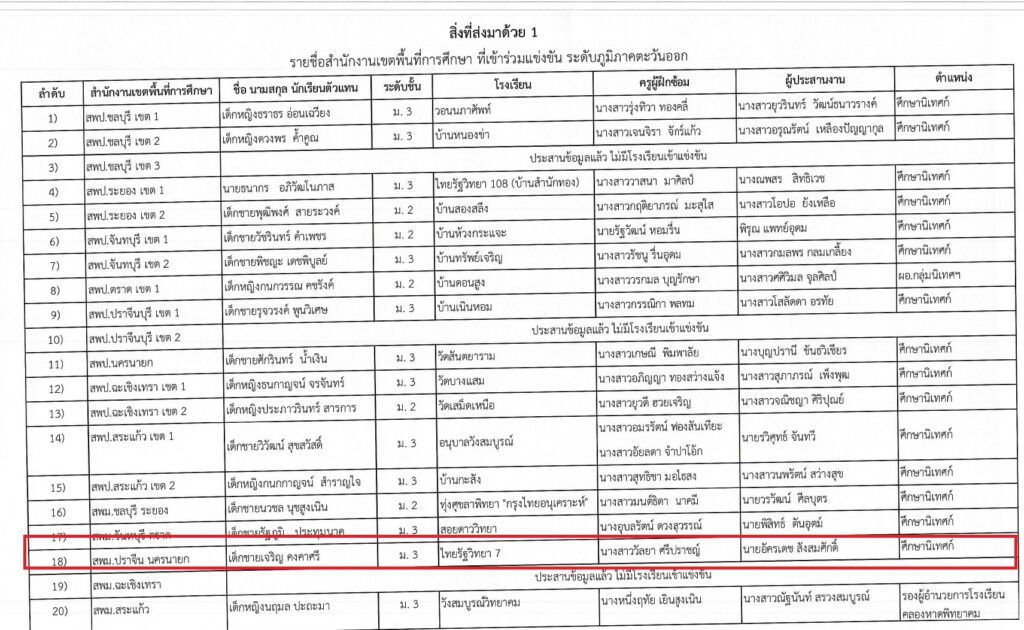 สิ่งที่ส่งมาด้วย 1
รายชื่อสำนักงานเขตพื้นที่การศึกษา ที่เข้าร่วมแข่งขัน ระดับภูมิภาคตะวันออก
ลำดับ สำนักงานเขตพื้นที่การศึกษา ชื่อ นามสกุล นักเรียนตัวแทน ระดับชั้น โรงเรียน ครูผู้ฝึกซ้อม ผู้ประสานงาน ตำแหน่ง
1) สพป.ชลบุรี เขต 1 เด็กหญิงธราธร อ่อนเฉวียง ม. 3 วอนนภาศัพท์ นางสาวรุ่งทิวา ทองคลี่ นางสาวยุวรินทร์ วัฒน์ธนาวรางค์ ศึกษานิเทศก์
2) สพป.ชลบุรี เขต 2 เด็กหญิงดวงพร ค้ำคูณ ม. 3 บ้านหนองข่า นางสาวเจนจิรา จักร์แก้ว นางสาวอรุณรัตน์ เหลืองปัญญากุล ศึกษานิเทศก์
3) สพป.ชลบุรี เขต 3 ประสานข้อมูลแล้ว ไม่มีโรงเรียนเข้าแข่งขัน
4) สพป.ระยอง เขต 1 นายธนากร อภิวัฒโนภาส ม. 3 ไทยรัฐวิทยา 108 (บ้านสำนักทอง) นางสาววาสนา มาศิลป์ นางณพสร สิทธิเวช ศึกษานิเทศก์
5) สพป.ระยอง เขต 2 เด็กชายพุฒิพงศ์ สายระวงค์ ม. 2 บ้านสองสลึง นางสาวกฤติยาภรณ์ มะสุใส นางสาวโอปอ ยังเหลือ ศึกษานิเทศก์
6) สพป.จันทบุรี เขต 1 เด็กชายวัชรินทร์ คำเพชร ม. 2 บ้านห้วงกระแจะ นายรัฐวัฒน์ หอมรื่น พิรุณ แพทย์อุดม ศึกษานิเทศก์
7) สพป.จันทบุรี เขต 2 เด็กชายพิชญะ เดชพิบูลย์ ม. 3 บ้านทรัพย์เจริญ นางสาวรัชนู รื่นอุดม นางสาวกมลพร กลมเกลี้ยง ศึกษานิเทศก์
8) สพป.ตราด เขต 1 เด็กหญิงกนกวรรณ คชรังค์ ม. 2 บ้านดอนสูง นางสาววรกมล บุญรักษา นางสาวศศิวิมล จุลศิลป์ ผอ.กลุ่มนิเทศฯ
9) สพป.ปราจีนบุรี เขต 1 เด็กชายรุจวรงค์ พูนวิเศษ ม. 3 บ้านเนินหอม นางสาวกรรณิกา พลทม นางสาวโสลัดดา อรทัย ศึกษานิเทศก์
10) สพป.ปราจีนบุรี เขต 2 ประสานข้อมูลแล้ว ไม่มีโรงเรียนเข้าแข่งขัน
11) สพป.นครนายก เด็กชายศักรินทร์ น้ำเงิน ม. 3 วัดสันตยาราม นางสาวเกษณี พิมพาลัย นางบุญปรานี ขันธวิเชียร ศึกษานิเทศก์
12) สพป.ฉะเชิงเทรา เขต 1 เด็กหญิงธนกาญจน์ จรจันทร์ ม. 3 วัดบางแสม นางสาวอภิญญา ทองสว่างแจ้ง นางสาวสุภาภรณ์ เพ็งพุฒ ศึกษานิเทศก์
13) สพป.ฉะเชิงเทรา เขต 2 เด็กหญิงประภาวรินทร์ สารการ ม. 2 วัดเสม็ดเหนือ นางสาวยุวดี ฮวยเจริญ นางสาวจณิชญา ศิริปุณย์ ศึกษานิเทศก์
14) สพป.สระแก้ว เขต 1 เด็กชายวิวัฒน์ สุขสวัสดิ์ ม. 3 อนุบาลวังสมบูรณ์ นางสาวอมรรัตน์ ฟองสันเทียะ นายรวิศุทธ์ จันทวี ศึกษานิเทศก์
นางสาวอัยลดา จำปาโอ้ก
15) สพป.สระแก้ว เขต 2 เด็กหญิงกนกกาญจน์ สำราญใจ ม. 3 บ้านกะสัง นางสาวสุทธิชา มอไธสง นางสาวนพรัตน์ สว่างสุข ศึกษานิเทศก์
16) สพม.ชลบุรี ระยอง เด็กชายนวชล นุชสูงเนิน ม. 2 ทุ่งศุขลาพิทยา "กรุงไทยอนุเคราะห์" นางสาวมนต์ธิดา นาคมี นายวรวัฒน์ ศีลบุตร ศึกษานิเทศก์
17) สพม.จันทบุรี ตราด เด็กชายรัฐภูมิ ประทุมนาค ม. 3 สอยดาววิทยา นางอุบลรัตน์ ดวงสุวรรณ์ นายพิสิทธ์ ตันอุตม์ ศึกษานิเทศก์
18) สพม.ปราจีน นครนายก เด็กชายเจริญ คงคาศรี ม. 3 ไทยรัฐวิทยา 7 นางสาววัลยา ศรีปราชญ์ นายอัครเดช สังสมศักดิ์ ศึกษานิเทศก์
19) สพม.ฉะเชิงเทรา ประสานข้อมูลแล้ว ไม่มีโรงเรียนเข้าแข่งขัน
20) สพม.สระแก้ว เด็กหญิงนฤมล ปะถะมา ม. 3 วังสมบูรณ์วิทยาคม นางหนึ่งฤทัย เยินสูงเนิน นางสาวณัฐนันท์ สรวงสมบูรณ์ รองผู้อำนวยการโรงเรียน
คลองหาดพิทยาคม